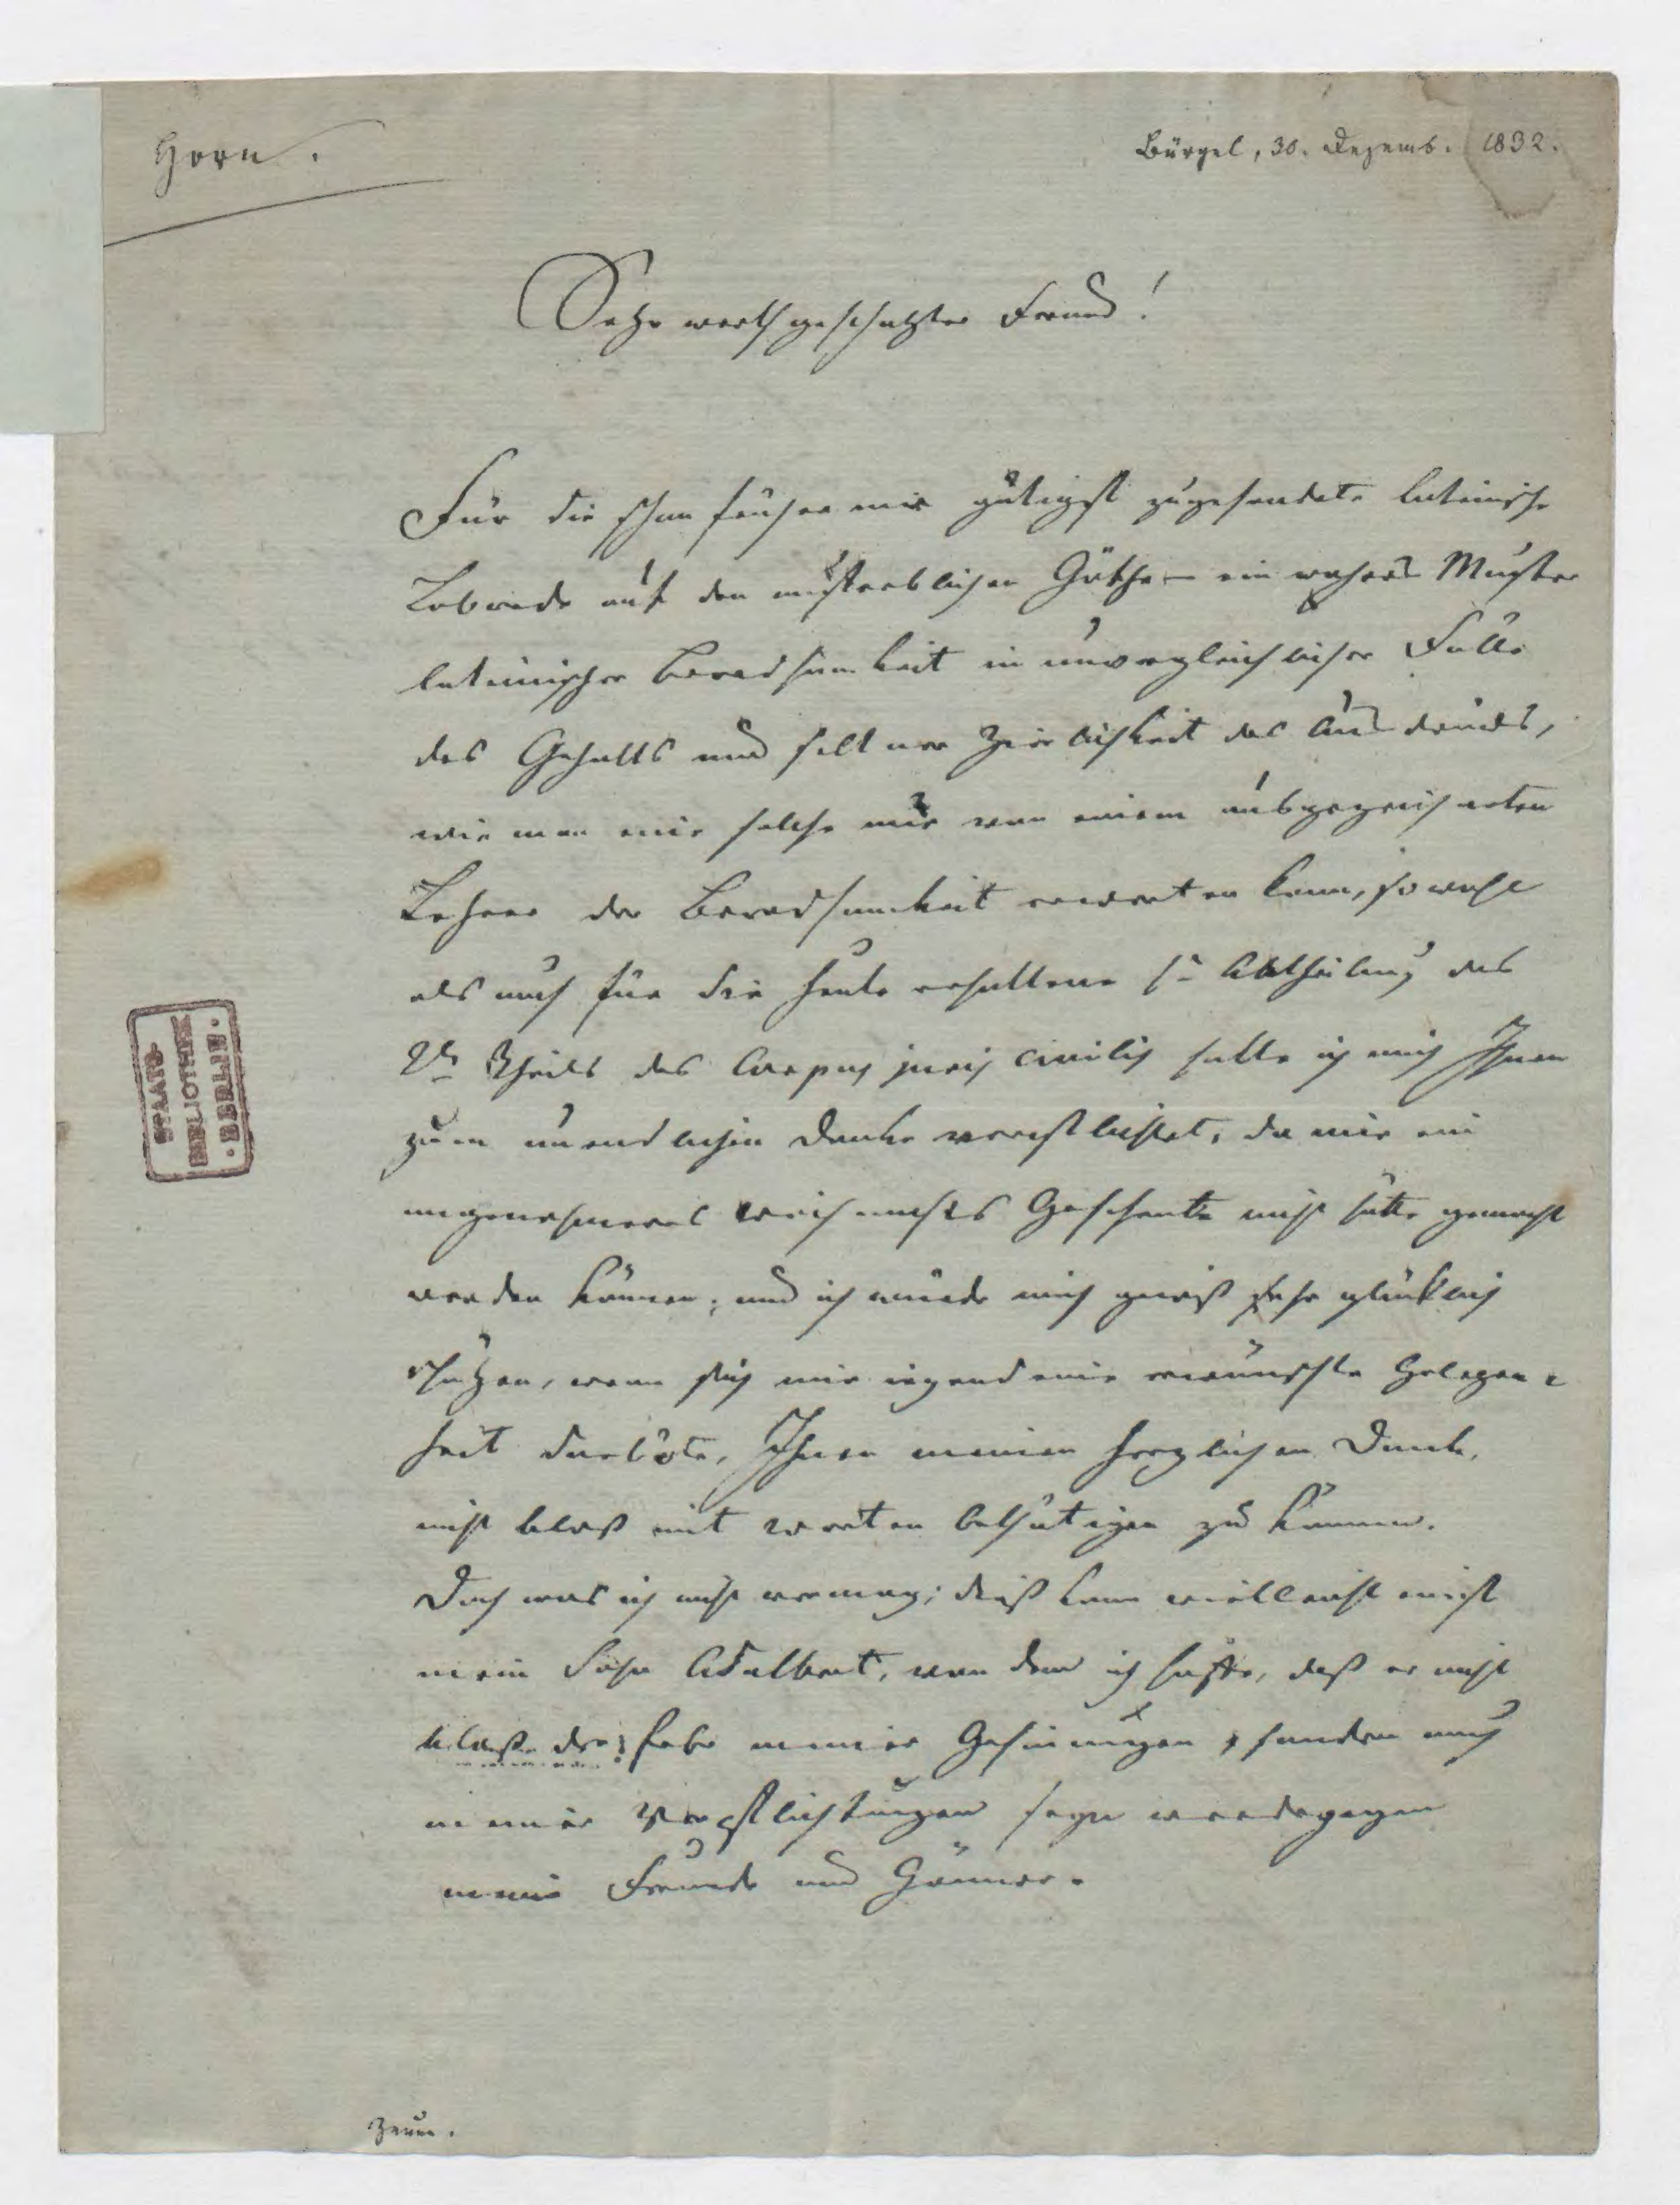 Horn.
Bürgel, 30. Dezemb. 1832.
Sehr werthgeschätzter Freund!
Für die schon früher mir gütigst zugesendete lateinische
Lobrede auf den unsterblichen Göthe – ein wahres Muster
lateinischer Beredsamkeit in unvergleichlicher Fülle
des Gehalts und seltner Zierlichkeit des Ausdrucks,
wie man eine solche nur von einem ausgezeichneten
Lehrer der Beredsamkeit erwarten kann, sowohl
als auch für die heute erhaltene Abtheilung des
Theils des Corpus juris civilis halte ich mich Ihnen
zum unendlichen Danke verpflichtet, da mir ein
angenehmeres Geschenk nicht hätte gemacht
werden können; und ich würde mich gewiß sehr glücklich
schätzen, wenn sich mir irgend eine erwünschte Gelegen-
heit darböte, Ihnen meinen herzlichen Dank,
nicht bloß mit Worten bethätigen zu können.
Doch was ich nicht vermag; dieß kann vielleicht einst
mein Sohn Adalbert, von dem ich hoffe, daß er nicht
bloß der Erbe meiner Gesinnungen, sondern auch
meiner Verpflichtungen seyn werde gegen
meine Freunde und Gönner.
STAATS-
BIBLIOTHEK
• BERLIN •